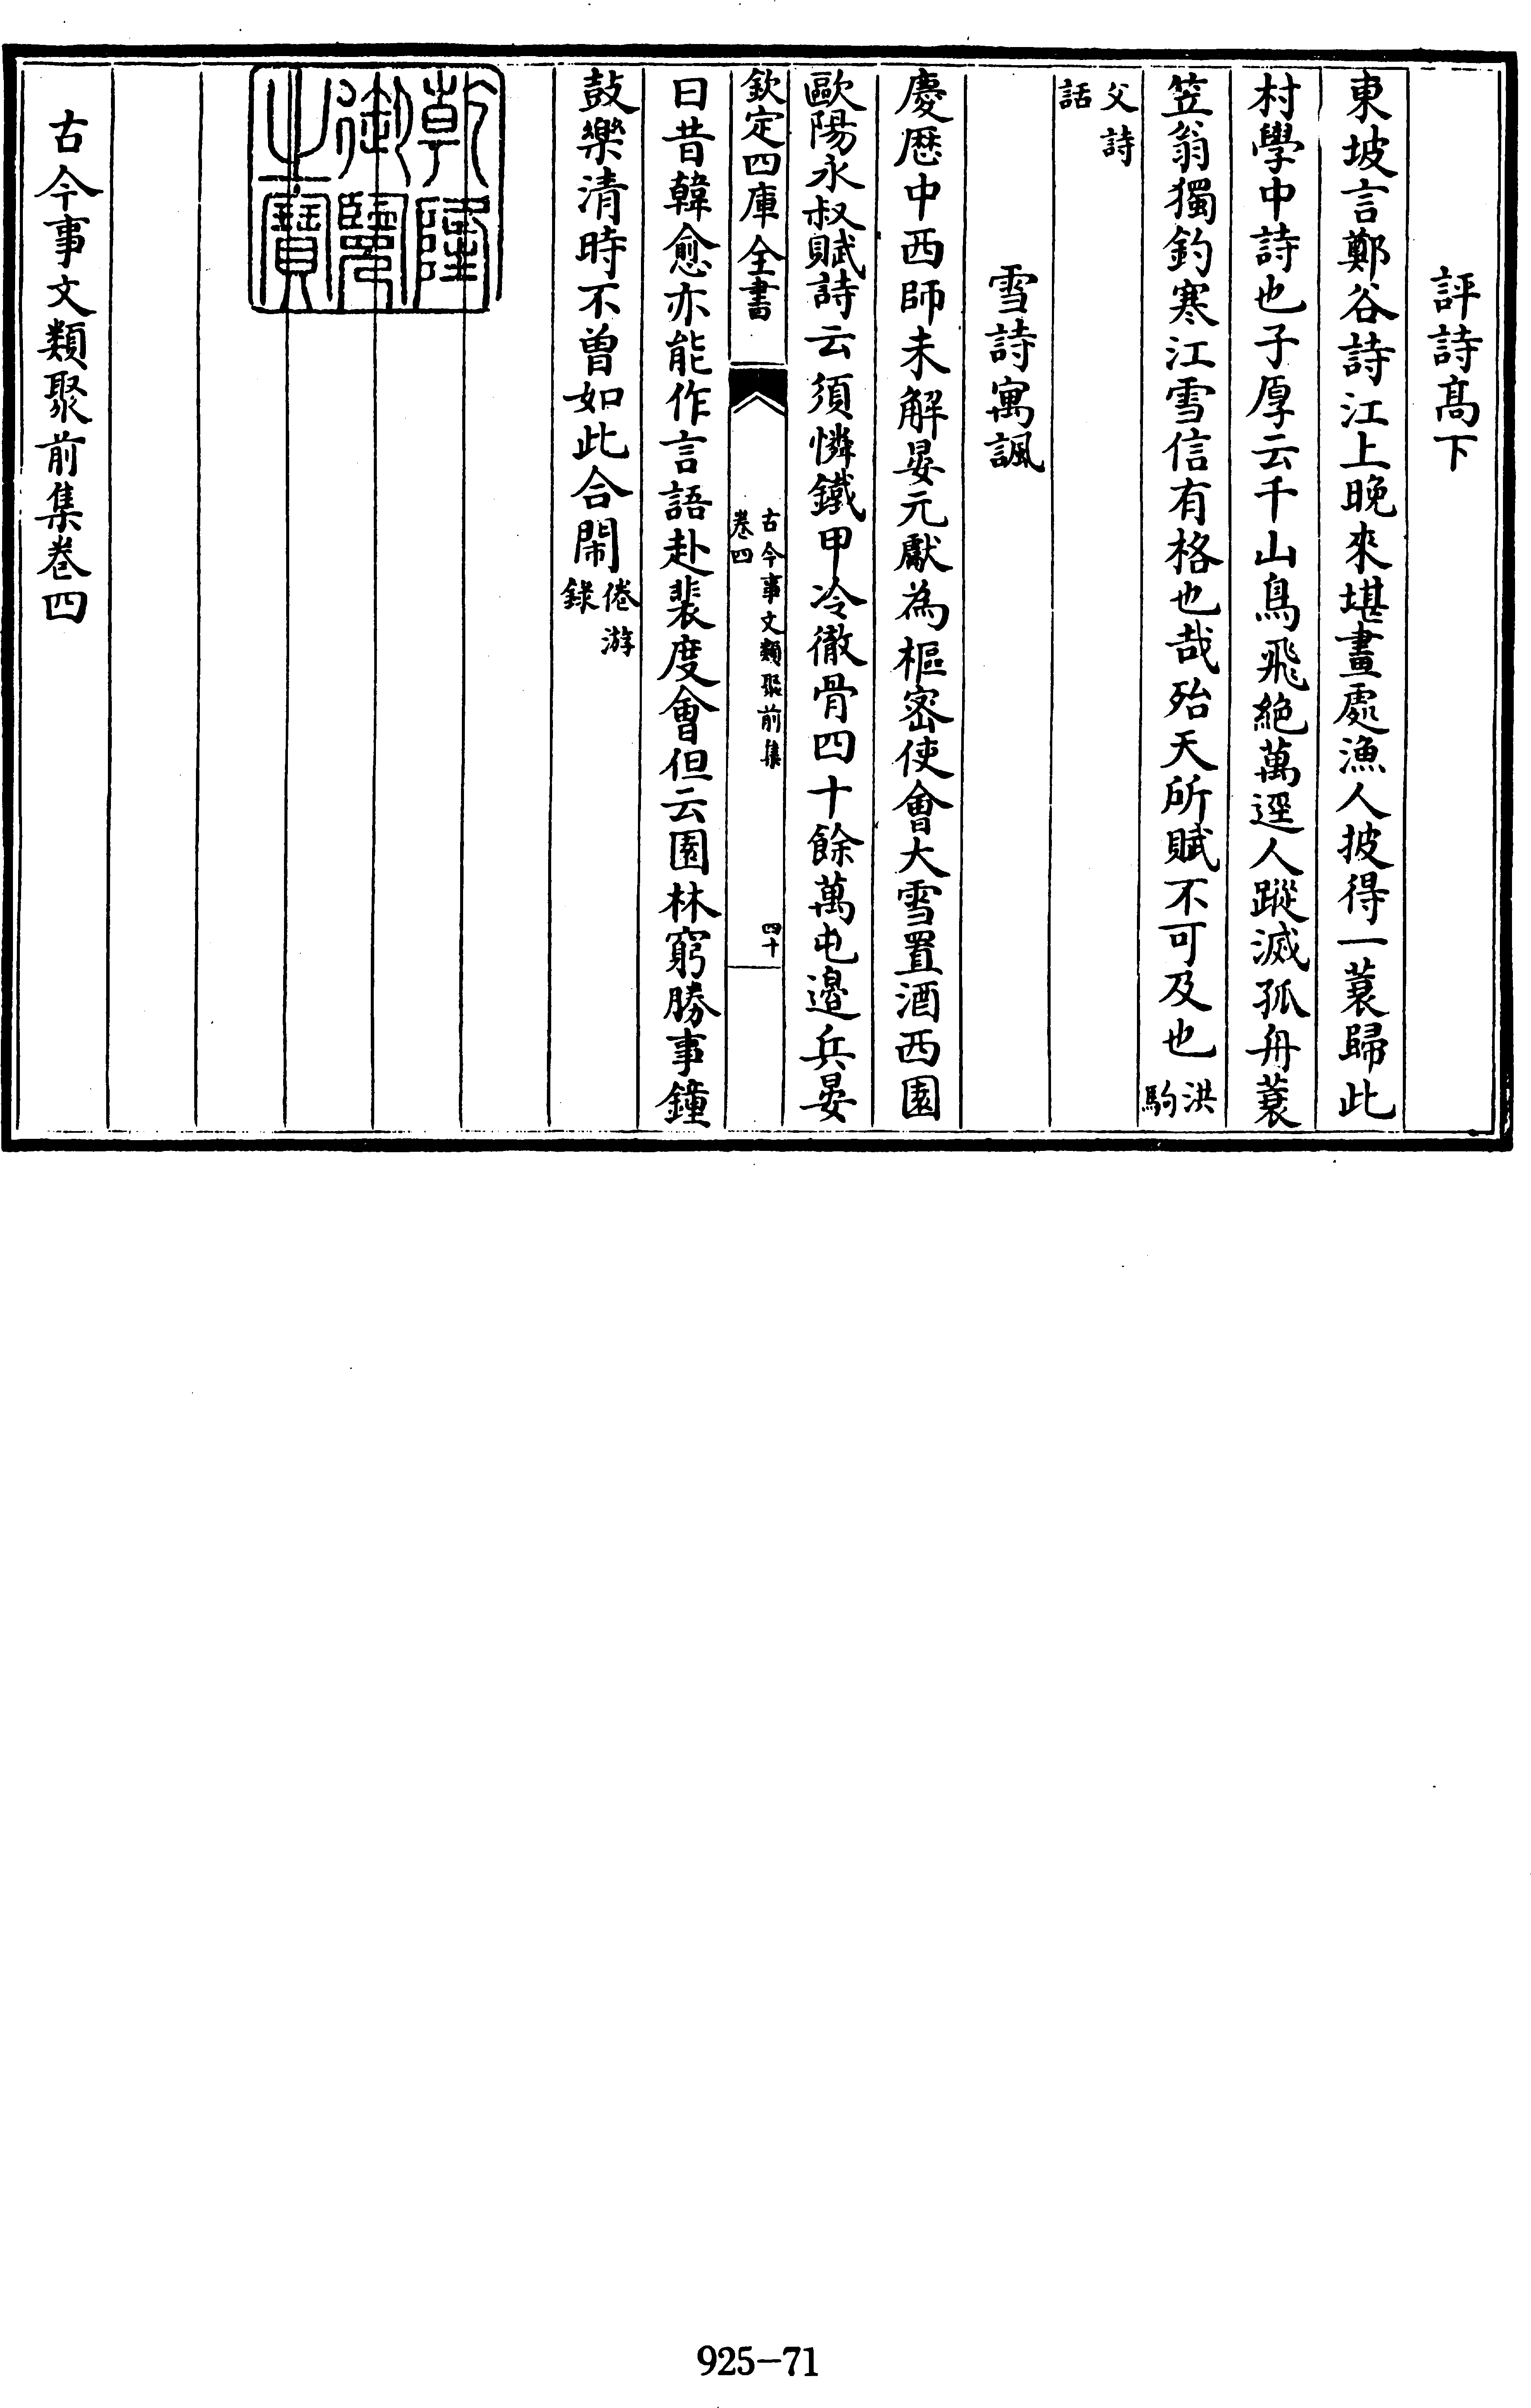 評詩髙下
東坡言鄭谷詩江上晚來堪畫處漁人披得一蓑歸此
村學中詩也子厚云千山鳥飛絶萬逕人蹤滅孤舟蓑
笠翁獨釣寒江雪信有格也哉殆天所賦不可及也洪駒
父詩話
雪詩寓諷
慶厯中西師未解晏元獻為樞宻使會大雪置酒西園
歐陽永叔賦詩云須憐鐵甲冷徹骨四十餘萬屯邉兵晏
欽定四庫全書
古今事文類聚前集
卷四
四十
曰昔韓愈亦能作言語赴裴度會但云園林窮勝事鐘
鼓樂清時不曽如此合閙倦游錄
乾隆御覽之寶
古今事文類聚前集卷四
925-71